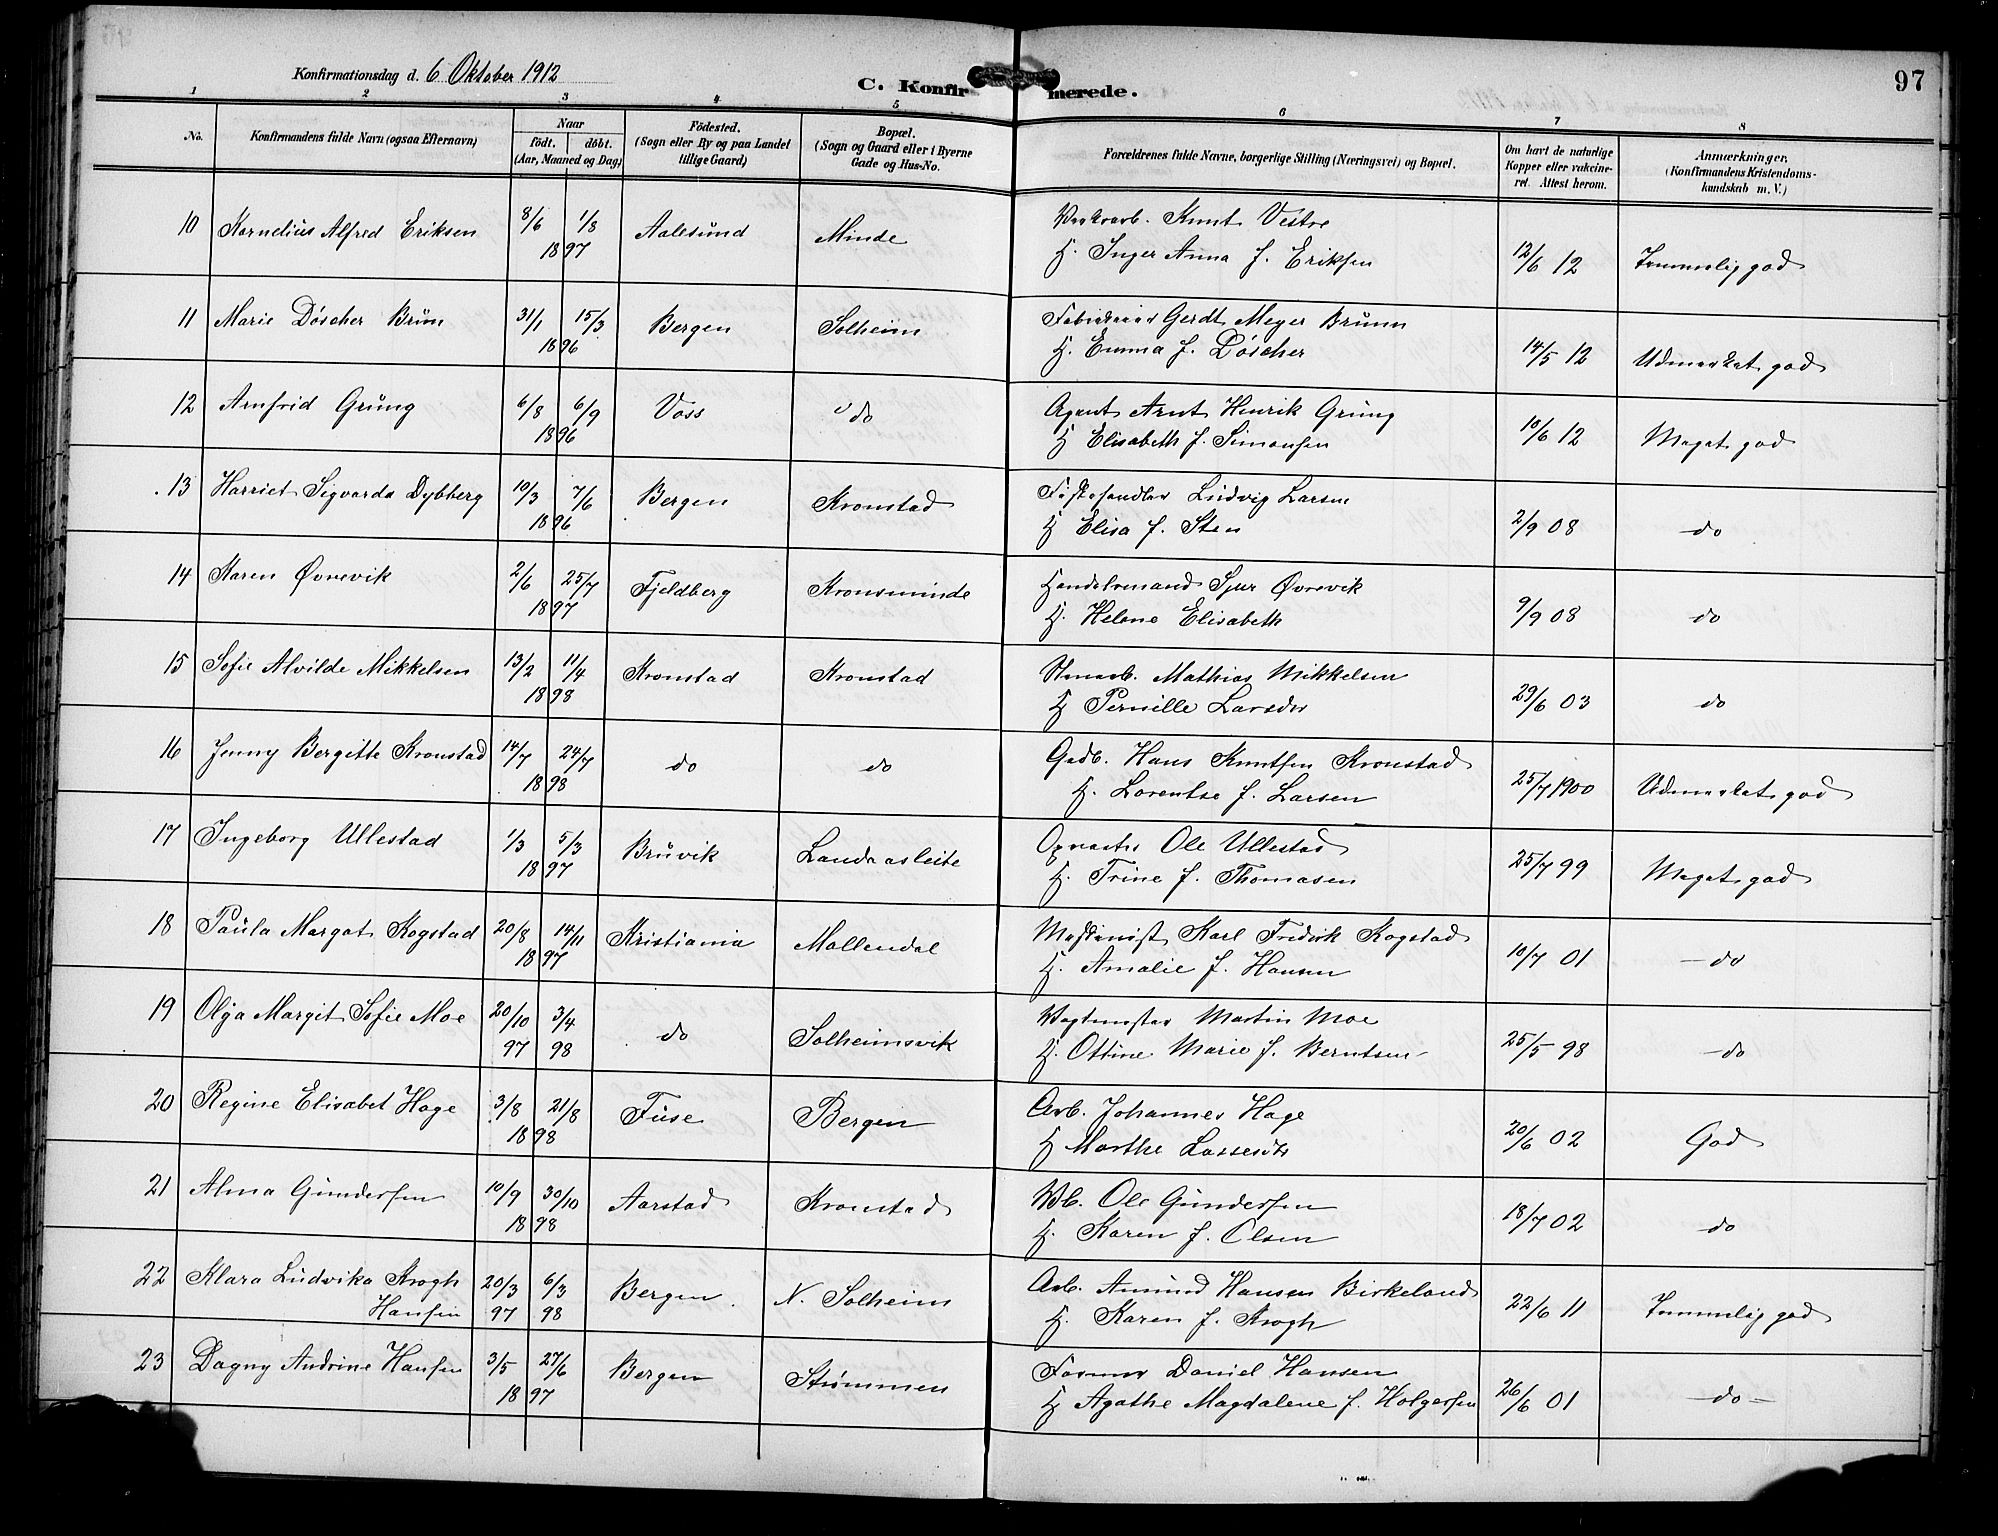 Konfirmationsdag d. 6 Oktober 1912
C. Konfirmerede.
97
1 2 3 4 5 6 7 8
No.
Konfirmandens fulde Navn (ogsaa Efternavn)
Naar
født. døbt.
(Aar, Maaned og Dag)
Fødested.
(Sogn eller By og paa Landet
tillige Gaard)
Bopæl.
(Sogn og Gaard eller i Byerne
Gade og Hus-No.
Forældrenes fulde Navne, borgerlige Stilling (Næringsvei) og Bopæl.
Om havt de naturlige
Kopper eller vakcine-
ret. Attest herom.
Anmærkninger.
(Konfirmandens Kristendoms-
kundskab m. V.)
10 Kornelius Alfred Eriksen 8/6 1/8 1897 Aalesund Minde
Knut Vestre
H. Inger Anna f. Eriksen 12/6 12 Temmelig god
11 Marie Döscher Brün 31/1 15/3 1896 Bergen Solheim
Gerdt Meyer Brunn
H. Emma f. Döscher 14/5 12 Udmerket god
12 Arnfrid Grung 6/8 6/9 1896 Voss do
Agent Arnt Henrik Grung
H Elisabeth f. Simonsen 10/6 12 Meget god
13 Harriet Sigvarda Dybberg 10/3 7/6 1896 Bergen Kronstad
Fiskehandler Ludvig Larsen
H Elisa f. Sten 2/9 08 do
14 Karen Øvrevik 2/6 25/7 1897 Fjeldberg Kronsminde
Handelsmand Sjur Øvrevik
H. Helene Elisabeth 9/9 08 do
15 Sofie Alvilde Mikkelsen 13/2 11/4 1898 Kronstad Kronstad
Stenarb. Mathias Mikkelsen
H Pernille Larsdtr 29/6 03 do
16 Jenny Bergitte Kronstad 14/7 24/7 1898 do do
Gadb. Hans Knutsen Kronstad
H. Lorentse f. Larsen 25/7 1900 Udmerket god
17 Ingeborg Ullestad 1/3 5/3 1897 Bruvik Landaasleite
Ole Ullestad
H. Trine f. Thomasen 25/7 99 Meget god
18 Paula Margot Kogstad 20/8 14/11 1897 Kristiania Møllendal
Maskinist Karl Fredrik Kogstad
H. Amalie f. Hansen 10/7 01 do
19 Olga Margit Sofie Moe 20/10 97 3/4 98 do Solheimsvik
Vagtmester Martin Moe
H. Ottine Marie f. Berntsen 25/5 98 do
20 Regine Elisabet Hage 3/8 21/8 1898 Fuse Bergen
Arb. Johannes Hage
H Marthe Lassesdtr 20/6 02 God
21 Alma Gundersen 10/9 30/10 1898 Aarstad Kronstad
Ole Gundersen
H. Karen f. Olsen 18/7 02 do
22 Klara Ludvika Krogh
Hansen 20/3 97 6/3 98 Bergen N. Solheim
Arb. Amund Hansen Birkeland
H. Karen f. Krogh 22/6 11 Temmelig god
23 Dagny Andrine Hansen 3/5 27/6 1897 Bergen Strømmen
Former Daniel Hansen
H Agathe Magdalene f. Holgersen 26/6 01 do